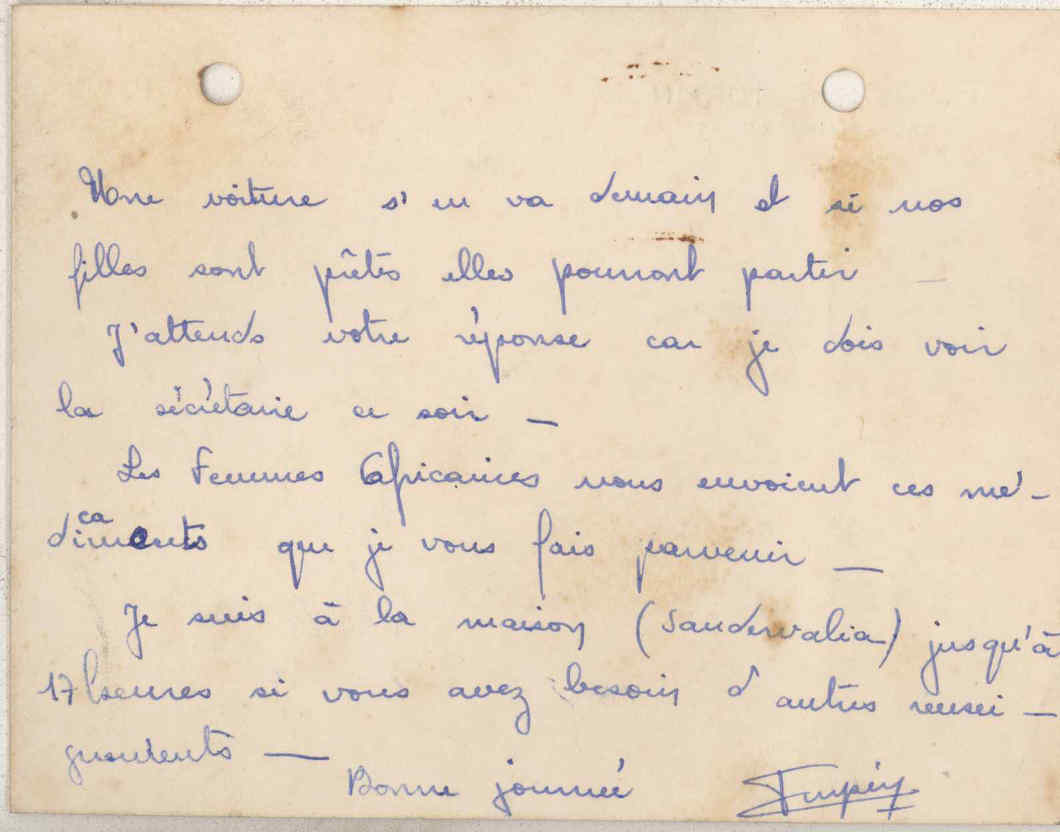 Une voiture s'en va demain et si nos
filles sont prêtes elles pourront partir
J'attends votre réponse car je dois voir
la sécrétaire ce soir —
Les Femmes Africaines nous envoient ces mé-
dicaments que je vous fais parvenir —
Je suis à la maison (Sandervalia) jusqu'à
17 heures si vous avez besoin d'autres rensei-
gnements —
Bonne journée